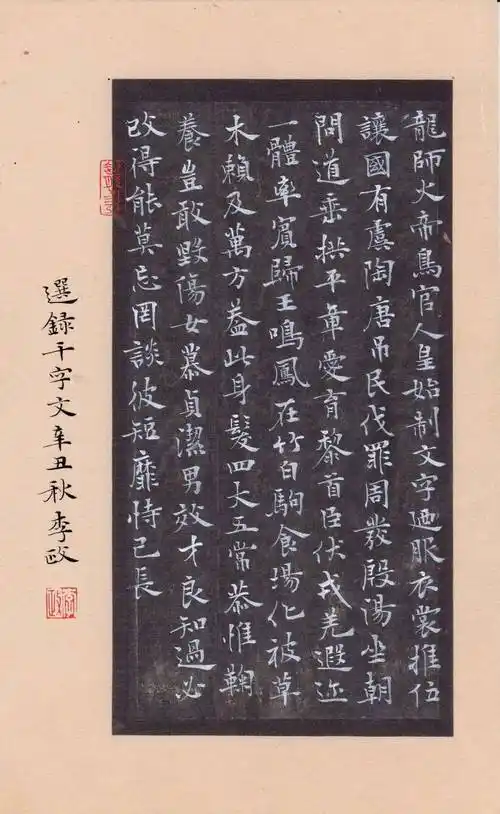 龍師火帝鳥官人皇始制文字迺服衣裳推位
讓國有虞陶唐吊民伐罪周發殷湯坐朝
問道垂拱平章愛育黎首臣伏戎羌遐迩
一體率賓歸王鳴鳳在竹白駒食場化被草
木賴及萬方蓋此身髮四大五常恭惟鞠
養豈敢毀傷女慕貞潔男效才良知過必
改得能莫忘罔談彼短靡恃己長
選録千字文辛丑秋李政
李政